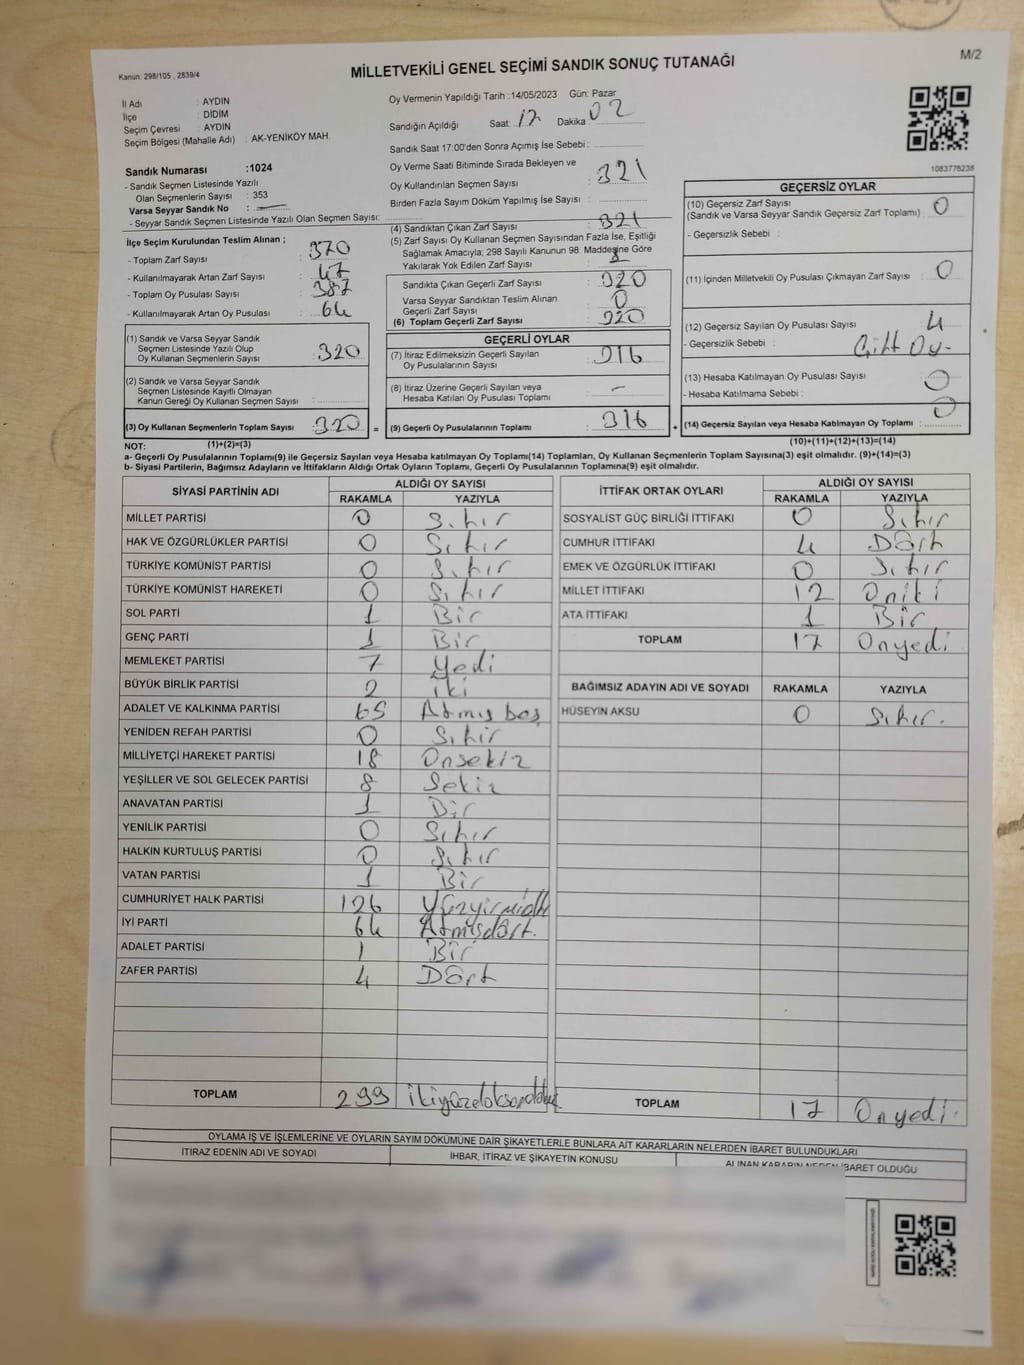 M/2
Kanun: 298/105 , 2839/4
MİLLETVEKİLİ GENEL SEÇİMİ SANDIK SONUÇ TUTANAĞI
İl Adı : AYDIN
İlçe : DİDİM
Seçim Çevresi : AYDIN
Seçim Bölgesi (Mahalle Adı) : AK-YENİKÖY MAH.
Sandık Numarası :1024
- Sandık Seçmen Listesinde Yazılı
Olan Seçmenlerin Sayısı : 353
Varsa Seyyar Sandık No :
- Seyyar Sandık Seçmen Listesinde Yazılı Olan Seçmen Sayısı:
Oy Vermenin Yapıldığı Tarih :14/05/2023 Gün: Pazar
Sandığın Açıldığı Saat: 17 Dakika: 02
Sandık Saat 17:00'den Sonra Açımış İse Sebebi :
Oy Verme Saati Bitiminde Sırada Bekleyen ve
Oy Kullandırılan Seçmen Sayısı : 321
Birden Fazla Sayım Döküm Yapılmış İse Sayısı :
1083776238
İlçe Seçim Kurulundan Teslim Alınan ;
- Toplam Zarf Sayısı : 370
- Kullanılmayarak Artan Zarf Sayısı : 47
- Toplam Oy Pusulası Sayısı : 387
- Kullanılmayarak Artan Oy Pusulası : 64
(1) Sandık ve Varsa Seyyar Sandık
Seçmen Listesinde Yazılı Olup
Oy Kullanan Seçmenlerin Sayısı : 320
(2) Sandık ve Varsa Seyyar Sandık
Seçmen Listesinde Kayıtlı Olmayan
Kanun Gereği Oy Kullanan Seçmen Sayısı :
(3) Oy Kullanan Seçmenlerin Toplam Sayısı : 320 =
(4) Sandıktan Çıkan Zarf Sayısı : 321
(5) Zarf Sayısı Oy Kullanan Seçmen Sayısından Fazla İse, Eşitliği
Sağlamak Amacıyla; 298 Sayılı Kanunun 98. Maddesine Göre
Yakılarak Yok Edilen Zarf Sayısı :
Sandıkta Çıkan Geçerli Zarf Sayısı : 320
Varsa Seyyar Sandıktan Teslim Alınan
Geçerli Zarf Sayısı : 0
(6) Toplam Geçerli Zarf Sayısı : 320
GEÇERLİ OYLAR
(7) İtiraz Edilmeksizin Geçerli Sayılan
Oy Pusulalarının Sayısı : 316
(8) İtiraz Üzerine Geçerli Sayılan veya
Hesaba Katılan Oy Pusulası Toplamı : -
(9) Geçerli Oy Pusulalarının Toplamı : 316 +
GEÇERSİZ OYLAR
(10) Geçersiz Zarf Sayısı : 0
(Sandık ve Varsa Seyyar Sandık Geçersiz Zarf Toplamı)
- Geçersizlik Sebebi :
(11) İçinden Milletvekili Oy Pusulası Çıkmayan Zarf Sayısı : 0
(12) Geçersiz Sayılan Oy Pusulası Sayısı : 4
- Geçersizlik Sebebi : Çift Oy-
(13) Hesaba Katılmayan Oy Pusulası Sayısı : 0
- Hesaba Katılmama Sebebi :
(14) Geçersiz Sayılan veya Hesaba Katılmayan Oy Toplamı : 0
NOT: (1)+(2)=(3)
(10)+(11)+(12)+(13)=(14)
a- Geçerli Oy Pusulalarının Toplamı(9) ile Geçersiz Sayılan veya Hesaba katılmayan Oy Toplamı(14) Toplamları, Oy Kullanan Seçmenlerin Toplam Sayısına(3) eşit olmalıdır. (9)+(14)=(3)
b- Siyasi Partilerin, Bağımsız Adayların ve İttifakların Aldığı Ortak Oyların Toplamı, Geçerli Oy Pusulalarının Toplamına(9) eşit olmalıdır.
SİYASİ PARTİNİN ADI ALDIĞI OY SAYISI
RAKAMLA YAZIYLA
MİLLET PARTİSİ 0 Sıhır
HAK VE ÖZGÜRLÜKLER PARTİSİ 0 Sıhır
TÜRKİYE KOMÜNİST PARTİSİ 0 Sıhır
TÜRKİYE KOMÜNİST HAREKETİ 0 Sıhır
SOL PARTİ 1 Bir
GENÇ PARTİ 1 Bir
MEMLEKET PARTİSİ 7 Yedi
BÜYÜK BİRLİK PARTİSİ 2 iki
ADALET VE KALKINMA PARTİSİ 65 Atmış beş
YENİDEN REFAH PARTİSİ 0 Sıhır
MİLLİYETÇİ HAREKET PARTİSİ 18 Onsekiz
YEŞİLLER VE SOL GELECEK PARTİSİ 8 Sekiz
ANAVATAN PARTİSİ 1 Bir
YENİLİK PARTİSİ 0 Sıhır
HALKIN KURTULUŞ PARTİSİ 0 Sıhır
VATAN PARTİSİ 1 Bir
CUMHURİYET HALK PARTİSİ 126 Yüzyirmialtı
İYİ PARTİ 64 Atmışdört.
ADALET PARTİSİ 1 Bir
ZAFER PARTİSİ 4 Dört
TOPLAM 299 ikiyüzdoksandokuz
İTTİFAK ORTAK OYLARI ALDIĞI OY SAYISI
RAKAMLA YAZIYLA
SOSYALİST GÜÇ BİRLİĞİ İTTİFAKI 0 Sıhır
CUMHUR İTTİFAKI 4 Dört
EMEK VE ÖZGÜRLÜK İTTİFAKI 0 Sıhır
MİLLET İTTİFAKI 12 Oniki
ATA İTTİFAKI 1 Bir
TOPLAM 17 Onyedi
BAĞIMSIZ ADAYIN ADI VE SOYADI RAKAMLA YAZIYLA
HÜSEYİN AKSU 0 Sıhır.
TOPLAM 17 Onyedi.
OYLAMA İŞ VE İŞLEMLERİNE VE OYLARIN SAYIM DÖKÜMÜNE DAİR ŞİKAYETLERLE BUNLARA AİT KARARLARIN NELERDEN İBARET BULUNDUKLARI
İTİRAZ EDENİN ADI VE SOYADI İHBAR, İTİRAZ VE ŞİKAYETİN KONUSU ALINAN KARARIN NEDEN İBARET OLDUĞU